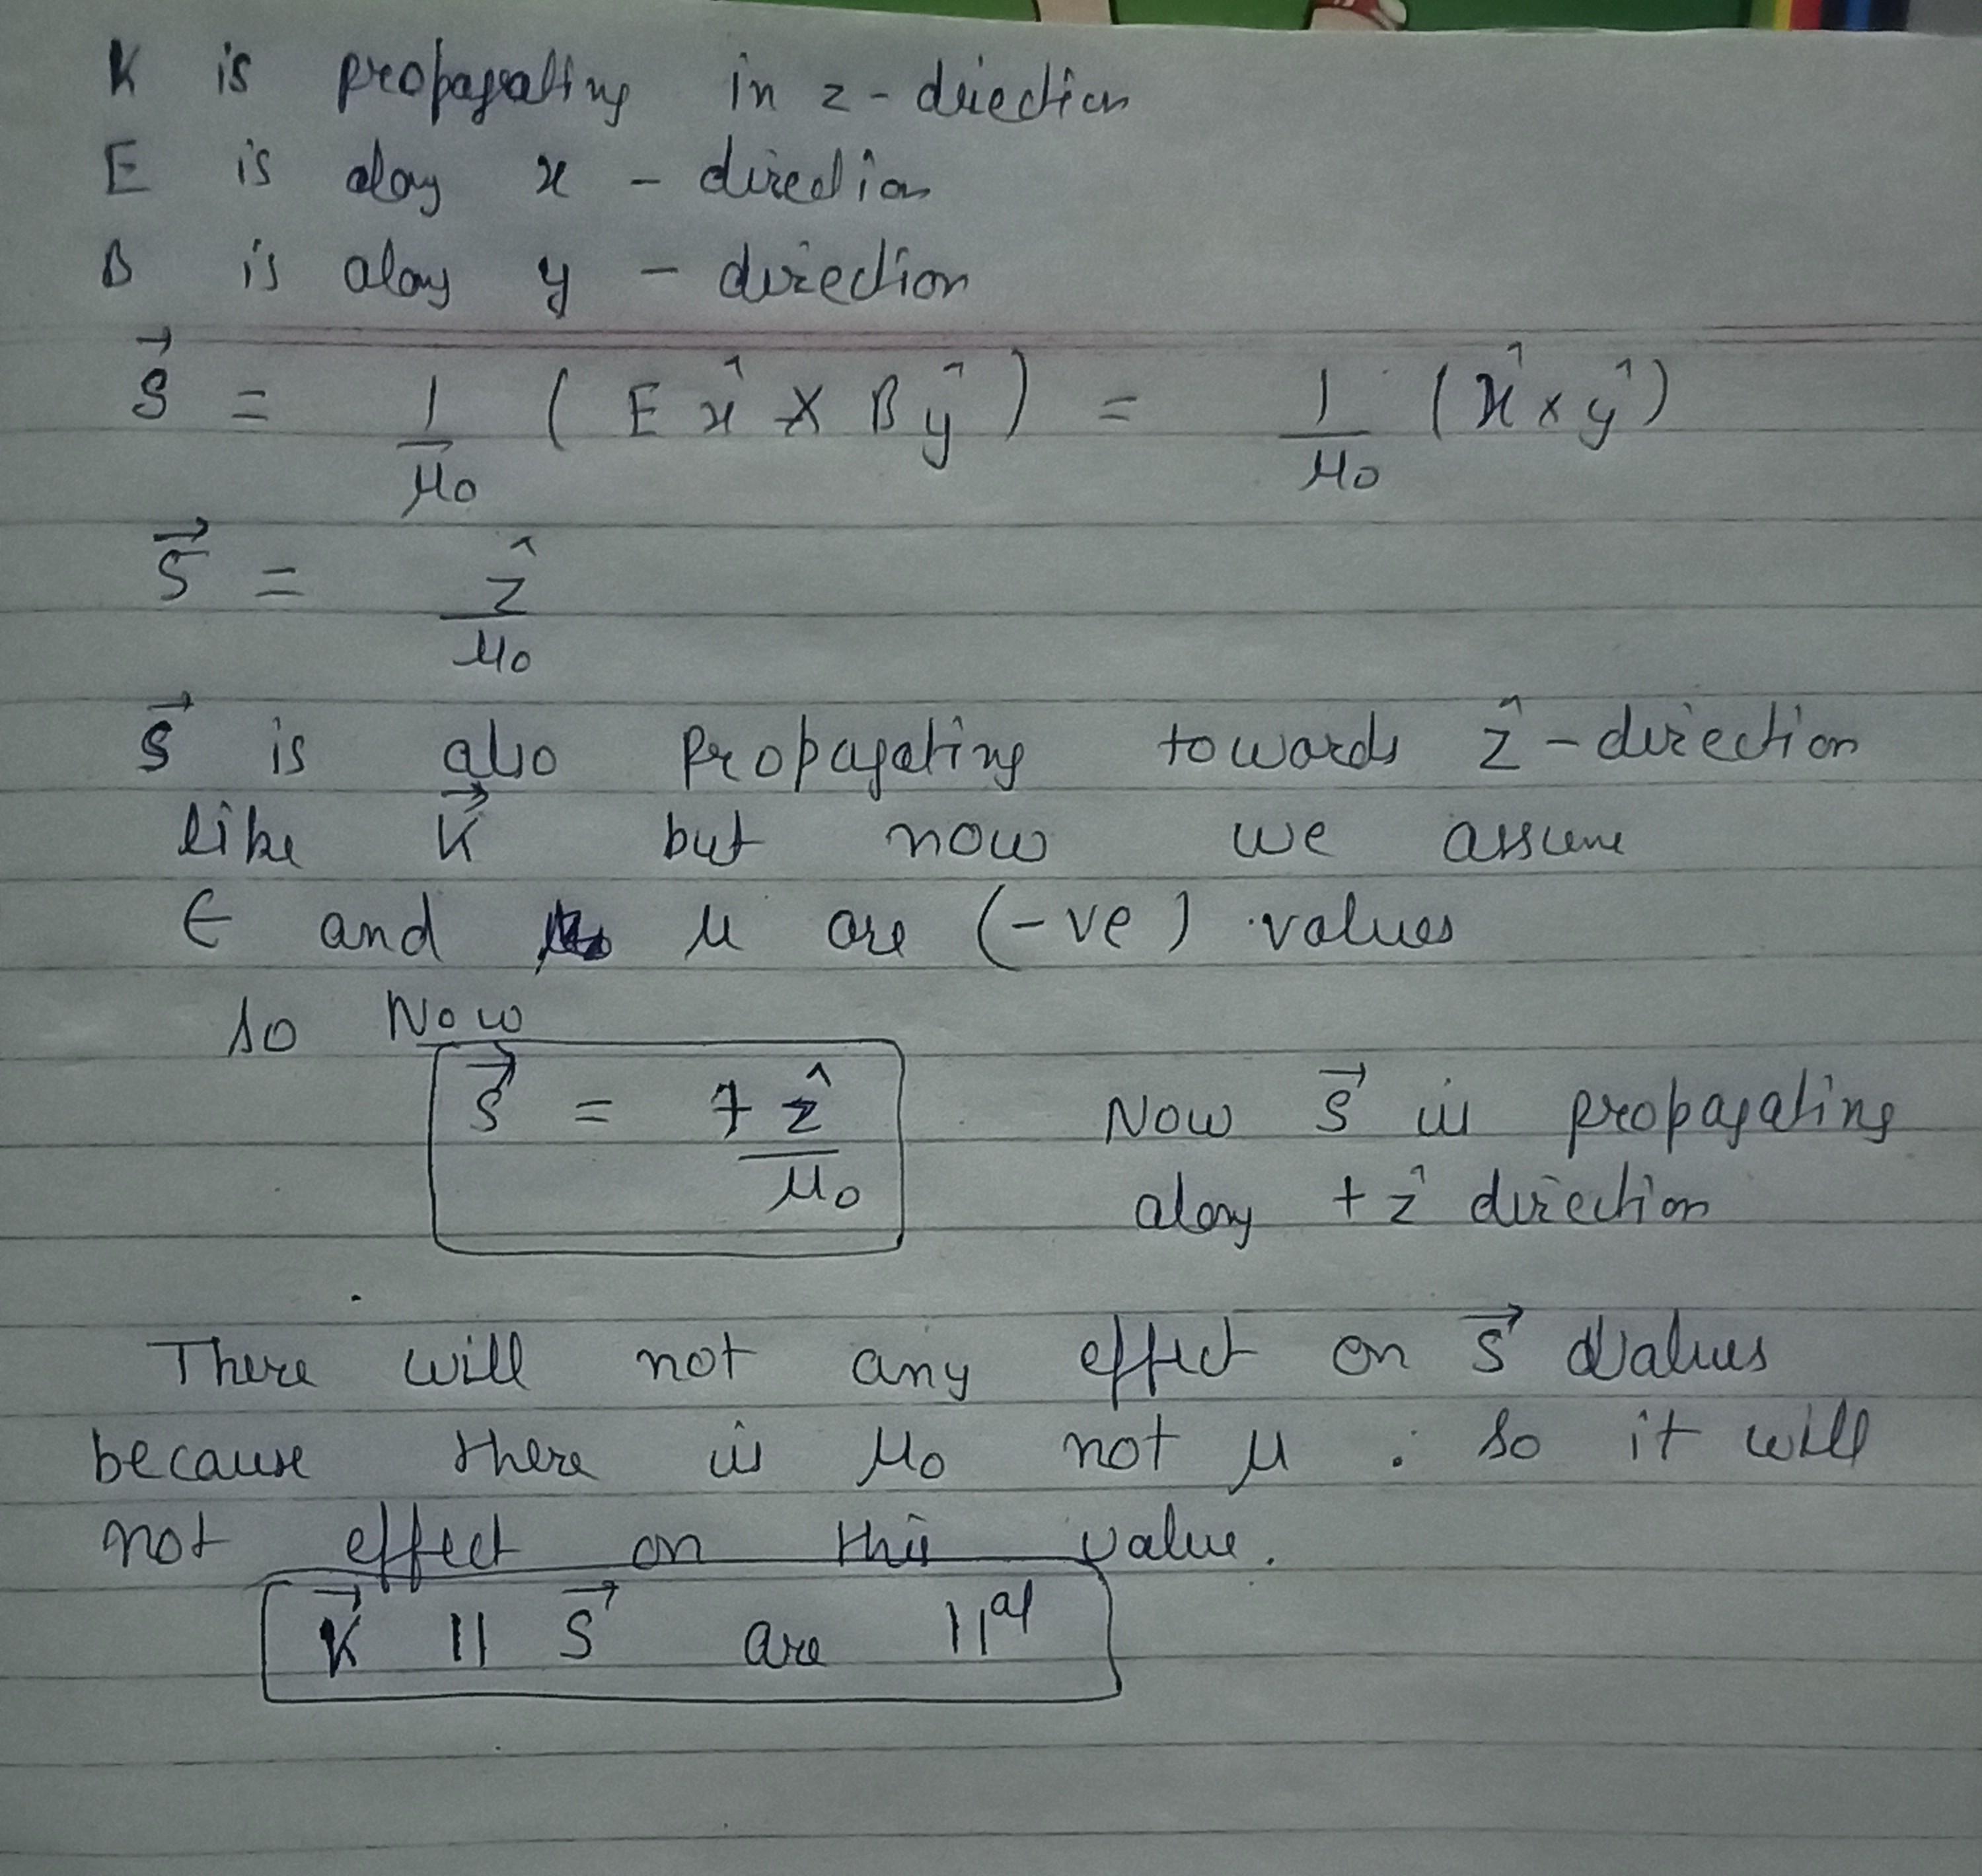 K is propagating in z - direction
E is along x - direction
B is along y - direction
S⃗ = 1/μ0 ( E x̂ × B ŷ ) = 1/μ0 ( x̂ × ŷ )
S⃗ = ẑ/μ0
S⃗ is also propagating towards ẑ - direction
like K⃗ but now we assume
ϵ and μ are (-ve) values
so Now
S⃗ = + ẑ/μ0 Now S⃗ is propagating
along + ẑ direction
There will not any effect on S⃗ values
because there is μ0 not μ . so it will
not effect on this value.
K⃗ || S⃗ are ||al